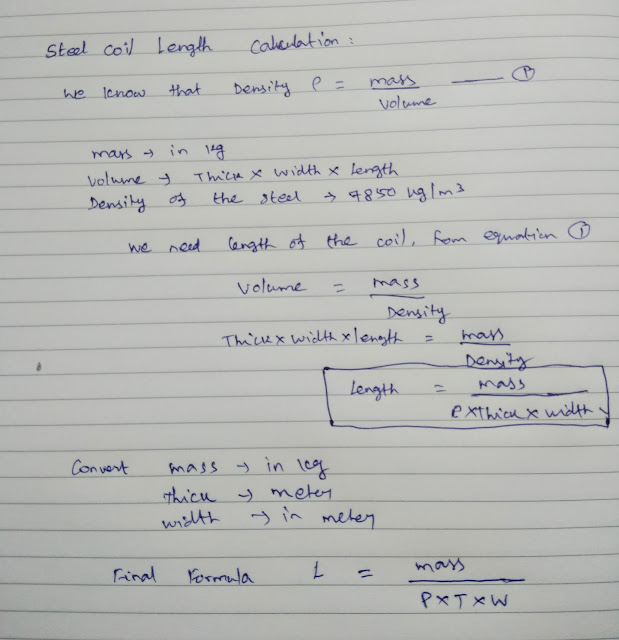 Steel coil Length Calculation :
We know that Density ρ = mass / Volume —— ①
mass → in kg
Volume → Thick × width × Length
Density of the steel → 7850 kg/m3
We need length of the coil, from equation ①
Volume = mass / Density
Thick × width × length = mass / Density
Length = mass / ρ × Thick × width
Convert mass → in kg
thick → meter
width → in meter
Final Formula L = mass / ρ × T × W